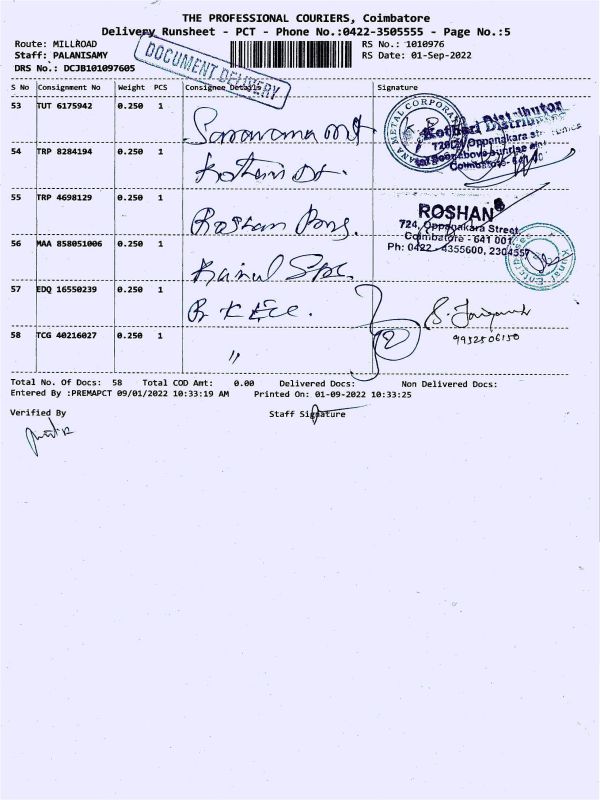 THE PROFESSIONAL COURIERS, Coimbatore
Delivery Runsheet - PCT - Phone No.:0422-3505555 - Page No.:5
Route: MILLROAD
RS No.: 1010976
Staff: PALANISAMY
RS Date: 01-Sep-2022
DRS No.: DCJB101097605
DOCUMENT DELIVERY
S No Consignment No Weight PCS Consignee Details Signature
53 TUT 6175942 0.250 1
METAL CORPORA
Kothari Distributor
Oppanakara
Coimbatore
54 TRP 8284194 0.250 1
55 TRP 4698129 0.250 1 Roshan
ROSHAN
724, Oppanakara Street,
Coimbatore - 641 001.
Ph: 0422 - 4355600, 2304557
56 MAA 858051006 0.250 1
57 EDQ 16550239 0.250 1
58 TCG 40216027 0.250 1 "
2
Total No. Of Docs: 58 Total COD Amt: 0.00 Delivered Docs: Non Delivered Docs:
Entered By :PREMAPCT 09/01/2022 10:33:19 AM Printed On: 01-09-2022 10:33:25
Verified By
Staff Signature